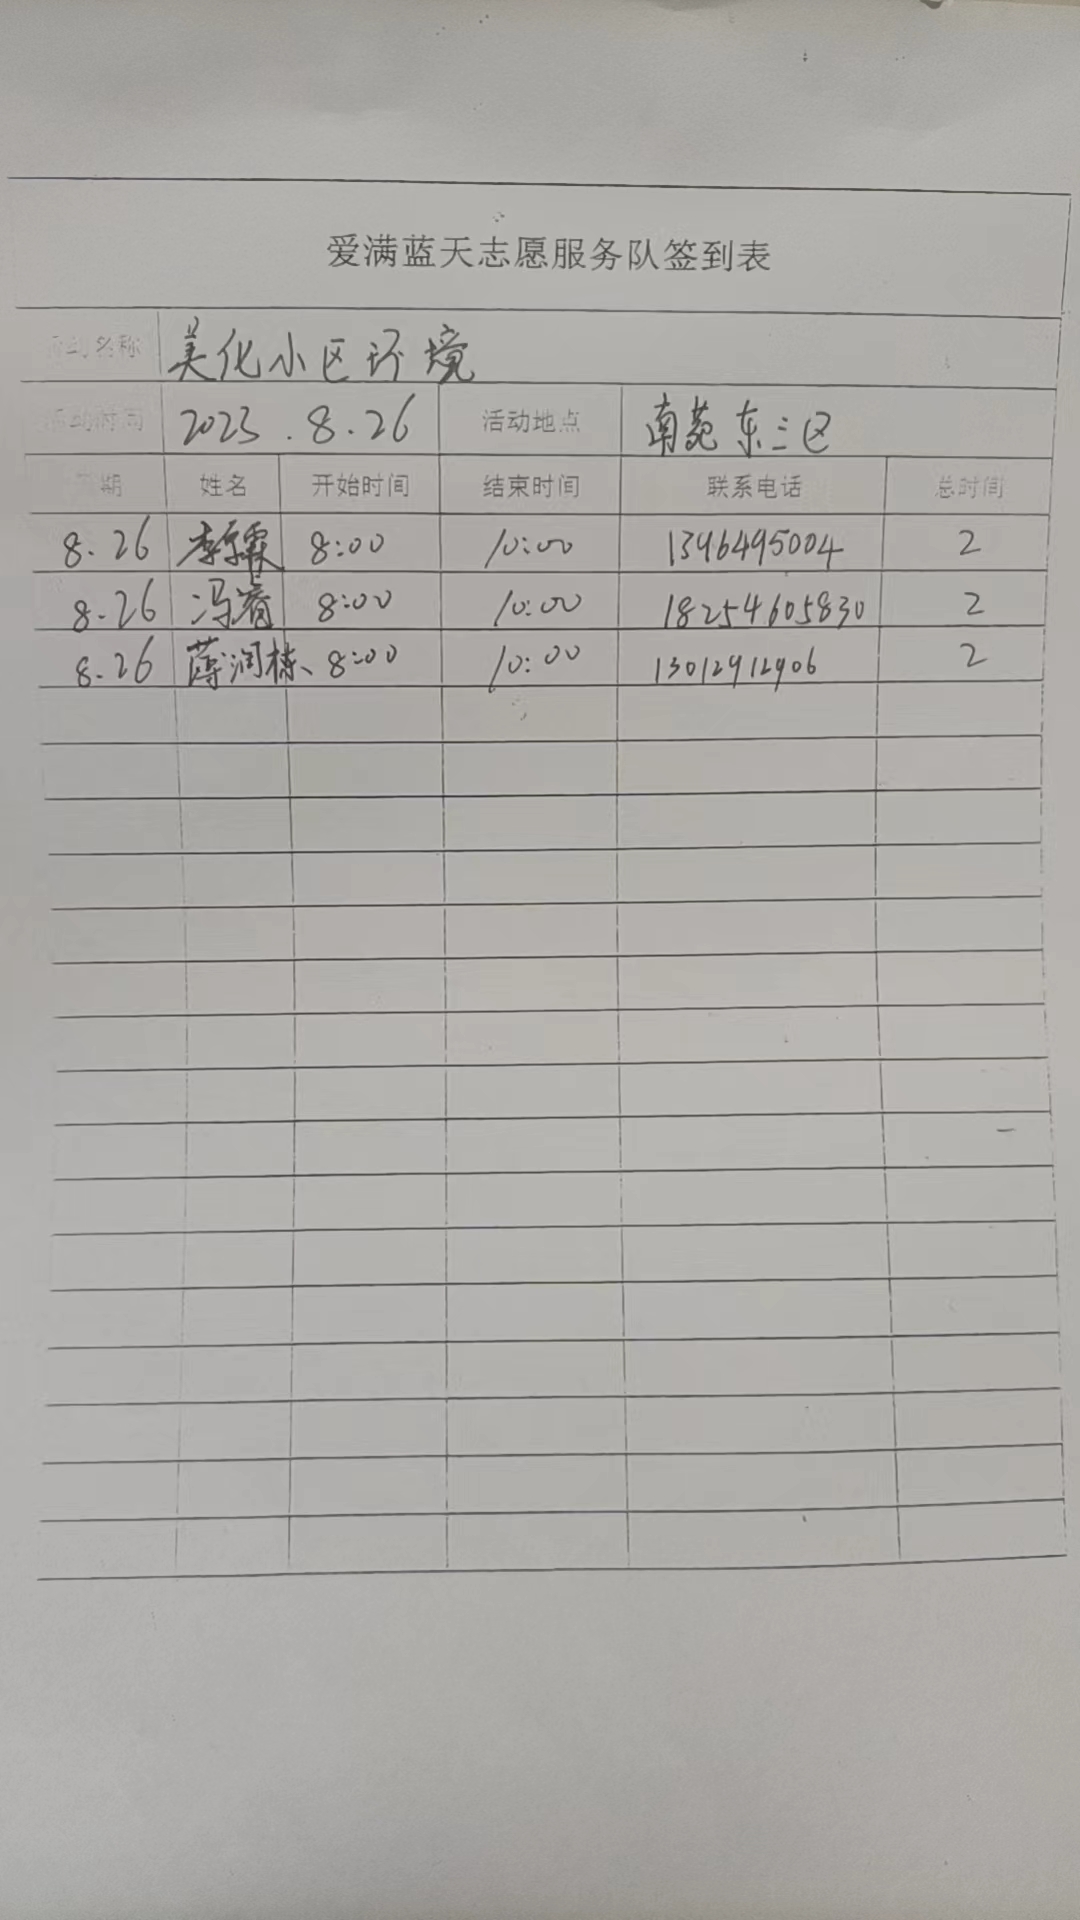 爱满蓝天志愿服务队签到表
活动名称 美化小区环境
活动时间 2023.8.26 活动地点 南苑东三区
日期 姓名 开始时间 结束时间 联系电话 总时间
8.26 8:00 10:00 2
8.26 冯睿 8:00 10:00 18254605830 2
8.26 薄润栋 8:00 10:00 13012912906 2